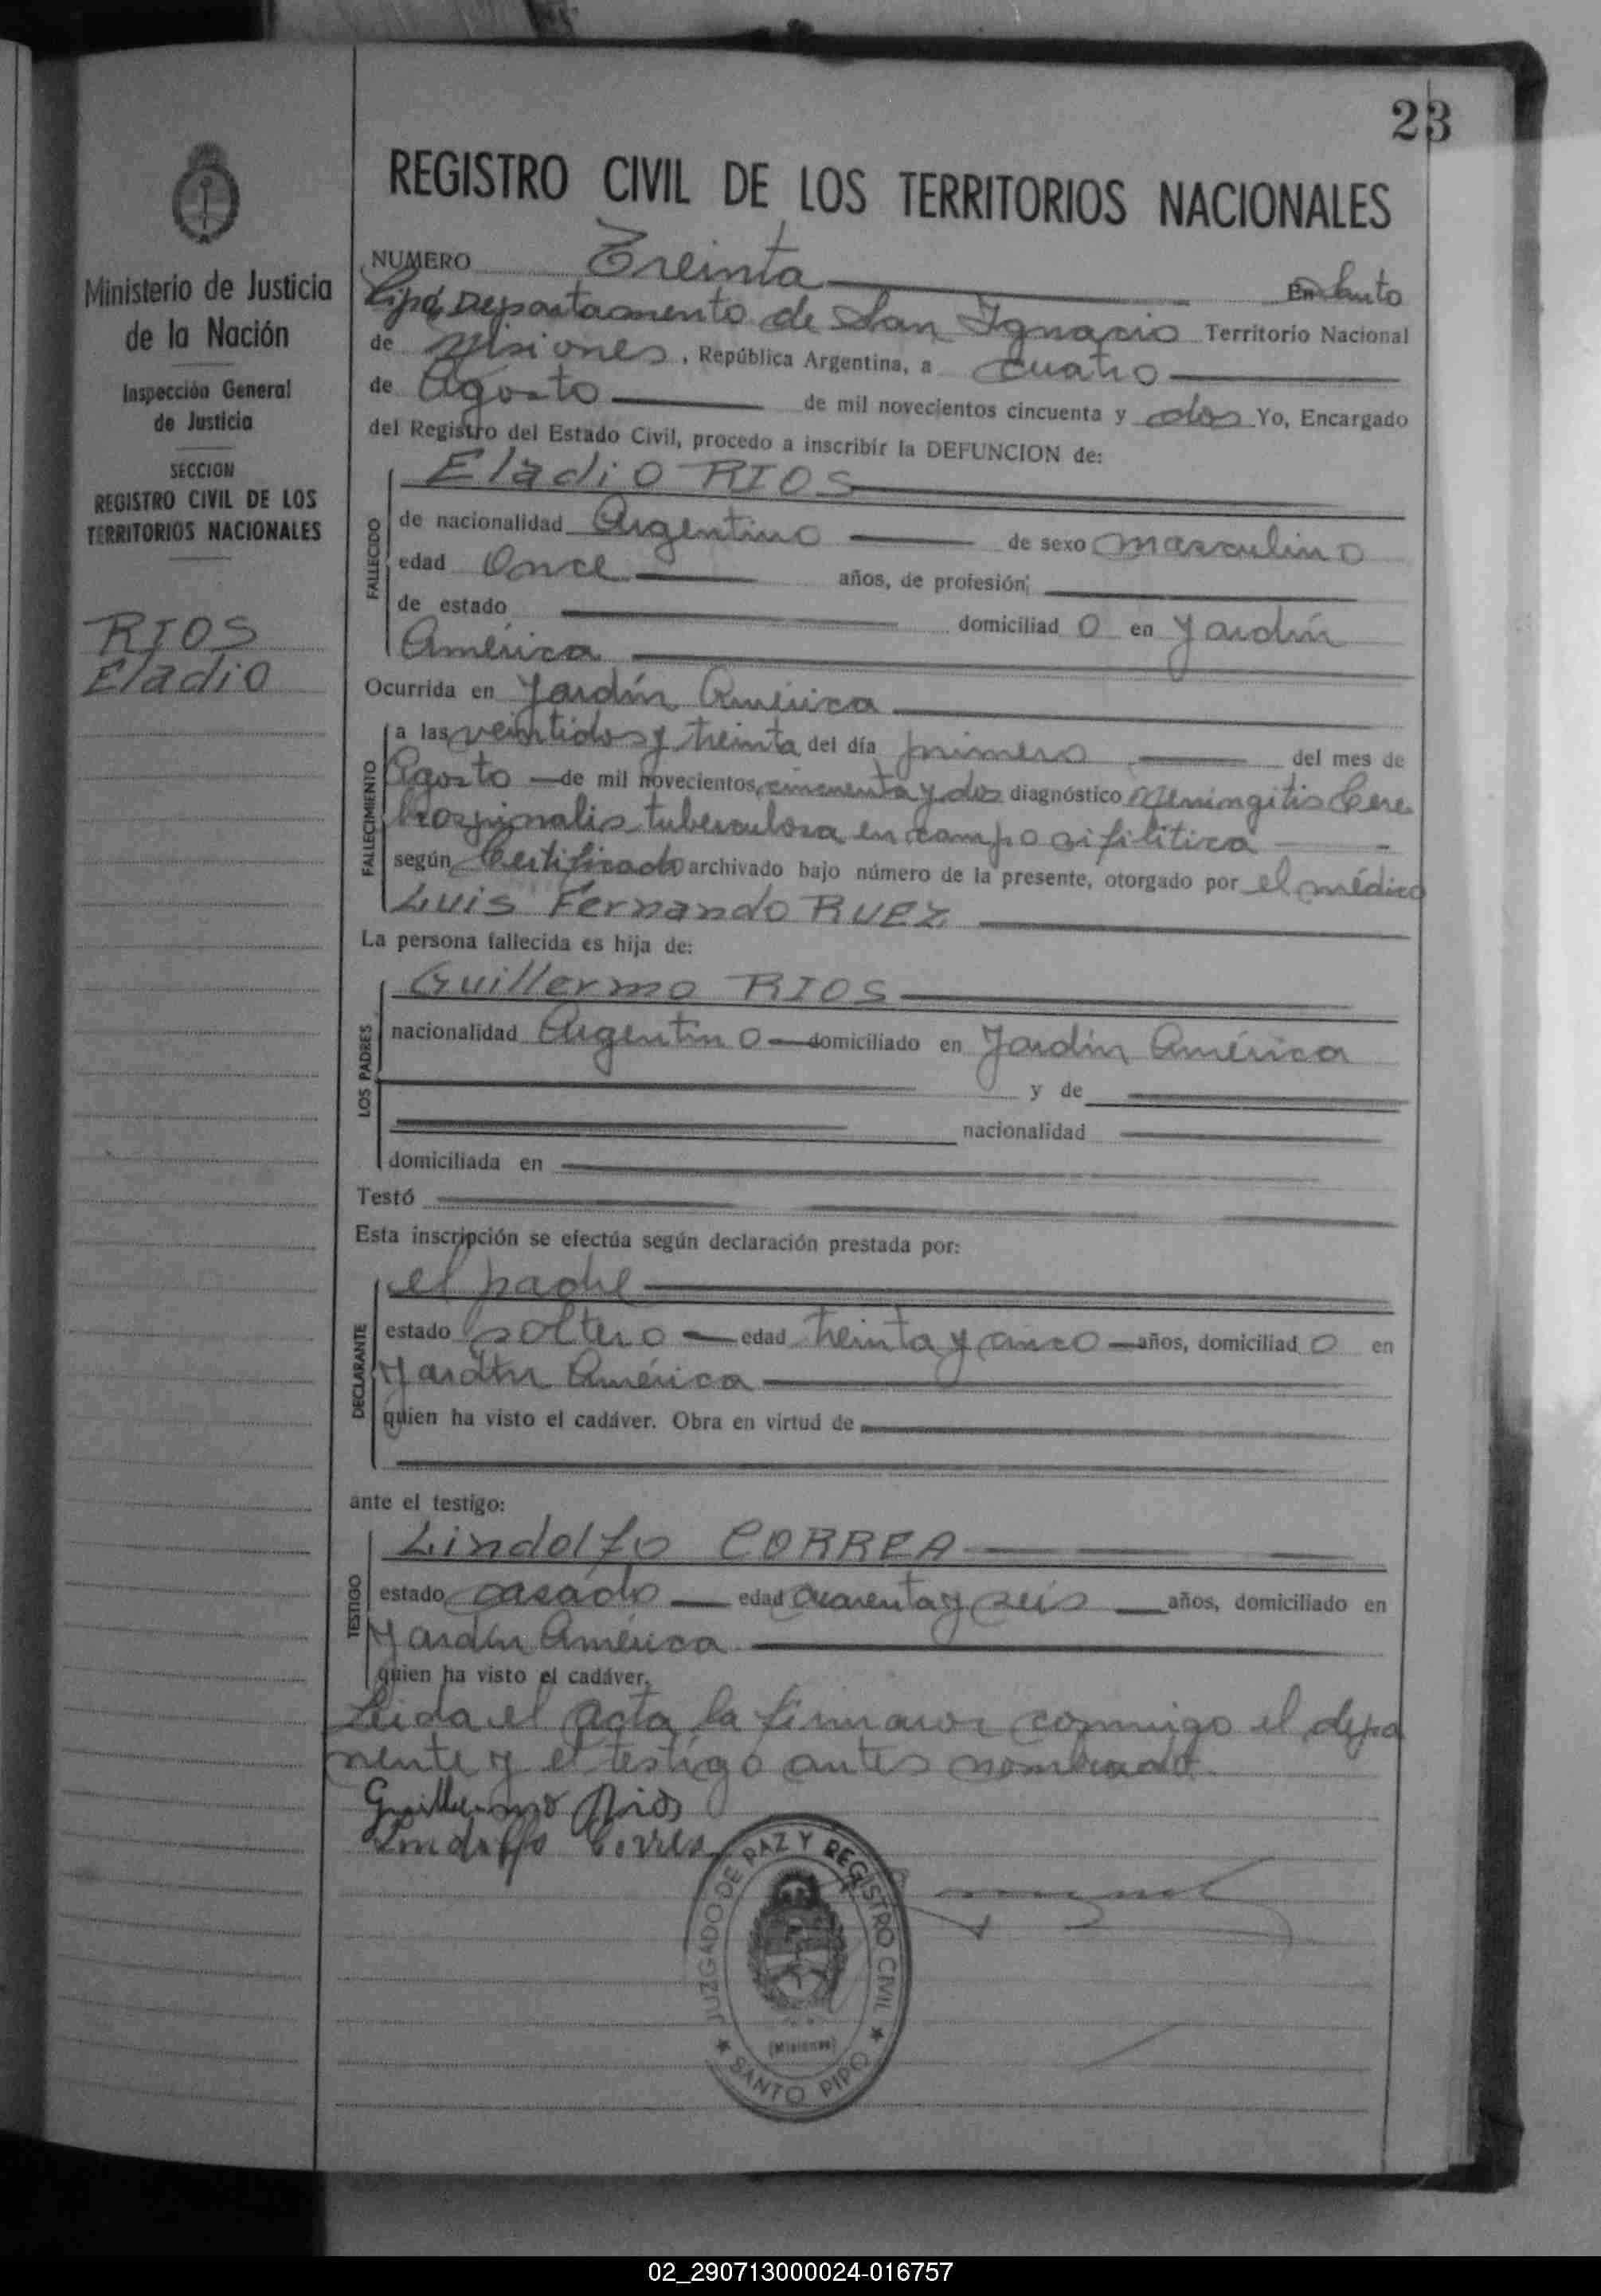 23
REGISTRO CIVIL DE LOS TERRITORIOS NACIONALES
Ministerio de Justicia
de la Nación
Inspección General
de Justicia
SECCION
REGISTRO CIVIL DE LOS
TERRITORIOS NACIONALES
RIOS
Eladio
NUMERO Treinta En Santo
Pipó, Departamento de San Ignacio Territorio Nacional
de Misiones, República Argentina, a cuatro
de Agosto de mil novecientos cincuenta y dos Yo, Encargado
del Registro del Estado Civil, procedo a inscribir la DEFUNCION de:
FALLECIDO
Eladio RIOS
de nacionalidad Argentino de sexo masculino
edad Once años, de profesión;
de estado domiciliad o en Jardín
América
Ocurrida en Jardín América
FALLECIMIENTO
a las veintidos y treinta del día primero del mes de
Agosto de mil novecientos cincuenta y dos diagnóstico Meningitis Cere
brospinalis tuberculosa en campo sifilitica
según Certificado archivado bajo número de la presente, otorgado por el médico
Luis Fernando RUEZ
La persona fallecida es hija de:
LOS PADRES
Guillermo RIOS
nacionalidad Argentino domiciliado en Jardín América
y de
nacionalidad
domiciliada en
Testó
Esta inscripción se efectúa según declaración prestada por:
DECLARANTE
el padre
estado soltero edad treinta y cinco años, domiciliad o en
Jardín América
quien ha visto el cadáver. Obra en virtud de
ante el testigo:
TESTIGO
Lindolfo CORREA
estado casado edad cuarenta y seis años, domiciliado en
Jardín América
quien ha visto el cadáver.
Leida el acta la firmaron conmigo el depo
nente y el testigo antes nombrado
Guillermo Rios
Lindolfo Correa
JUZGADO DE PAZ Y REGISTRO CIVIL
(Misiones)
★ SANTO PIPO ★
02_290713000024-016757